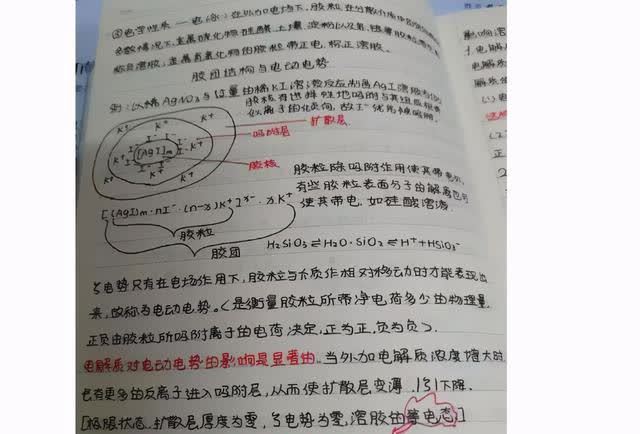 ③电学性质 — 电泳: 在外加电场下, 胶粒在分散介质中
多数情况下, 金属硫化物 硅酸 土壤 淀粉以及 胶粒带
称负溶胶, 金属氢氧化物的胶粒带正电, 称正溶胶.
胶团结构与电动电势
例: 以稀AgNO₃与过量的稀KI溶液反应制备AgI溶胶为例
胶粒有选择性地吸附与其组成相
似离子的倾向, 故I⁻优先被吸附.
K⁺ K⁺ K⁺
扩散层
吸附层
K⁺ I⁻ I⁻ K⁺
[AgI]m
胶核
K⁺ K⁺ K⁺
胶粒除吸附作用使其带电外,
有些胶粒表面分子的解离也可
使其带电, 如硅酸溶液.
[(AgI)m·nI⁻·(n-x)K⁺]ˣ⁻·xK⁺
胶粒
胶团
H₂SiO₃⇌H₂O·SiO₂⇌H⁺+HSiO₃⁻
ζ电势只有在电场作用下, 胶粒与介质作相对移动时才能表现出
来, 故称为电动电势. (是衡量胶粒所带净电荷多少的物理量,
正负由胶粒所吸附离子的电荷决定, 正为正, 负为负).
电解质对电动电势的影响是显著的. 当外加电解质浓度增大时,
也有更多的反离子进入吸附层, 从而使扩散层变薄, |ζ|下降.
[极限状态. 扩散层厚度为零, ζ电势为零, 溶胶的等电态.]
影响溶
电解
电解质
(1)
(2
正